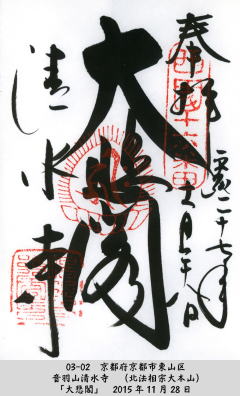 奉拝
平成二十七年
十一月廿八日
大悲閣
清水寺
03-02 京都府京都市東山区
音羽山清水寺 (北法相宗大本山)
「大悲閣」 2015年11月28日